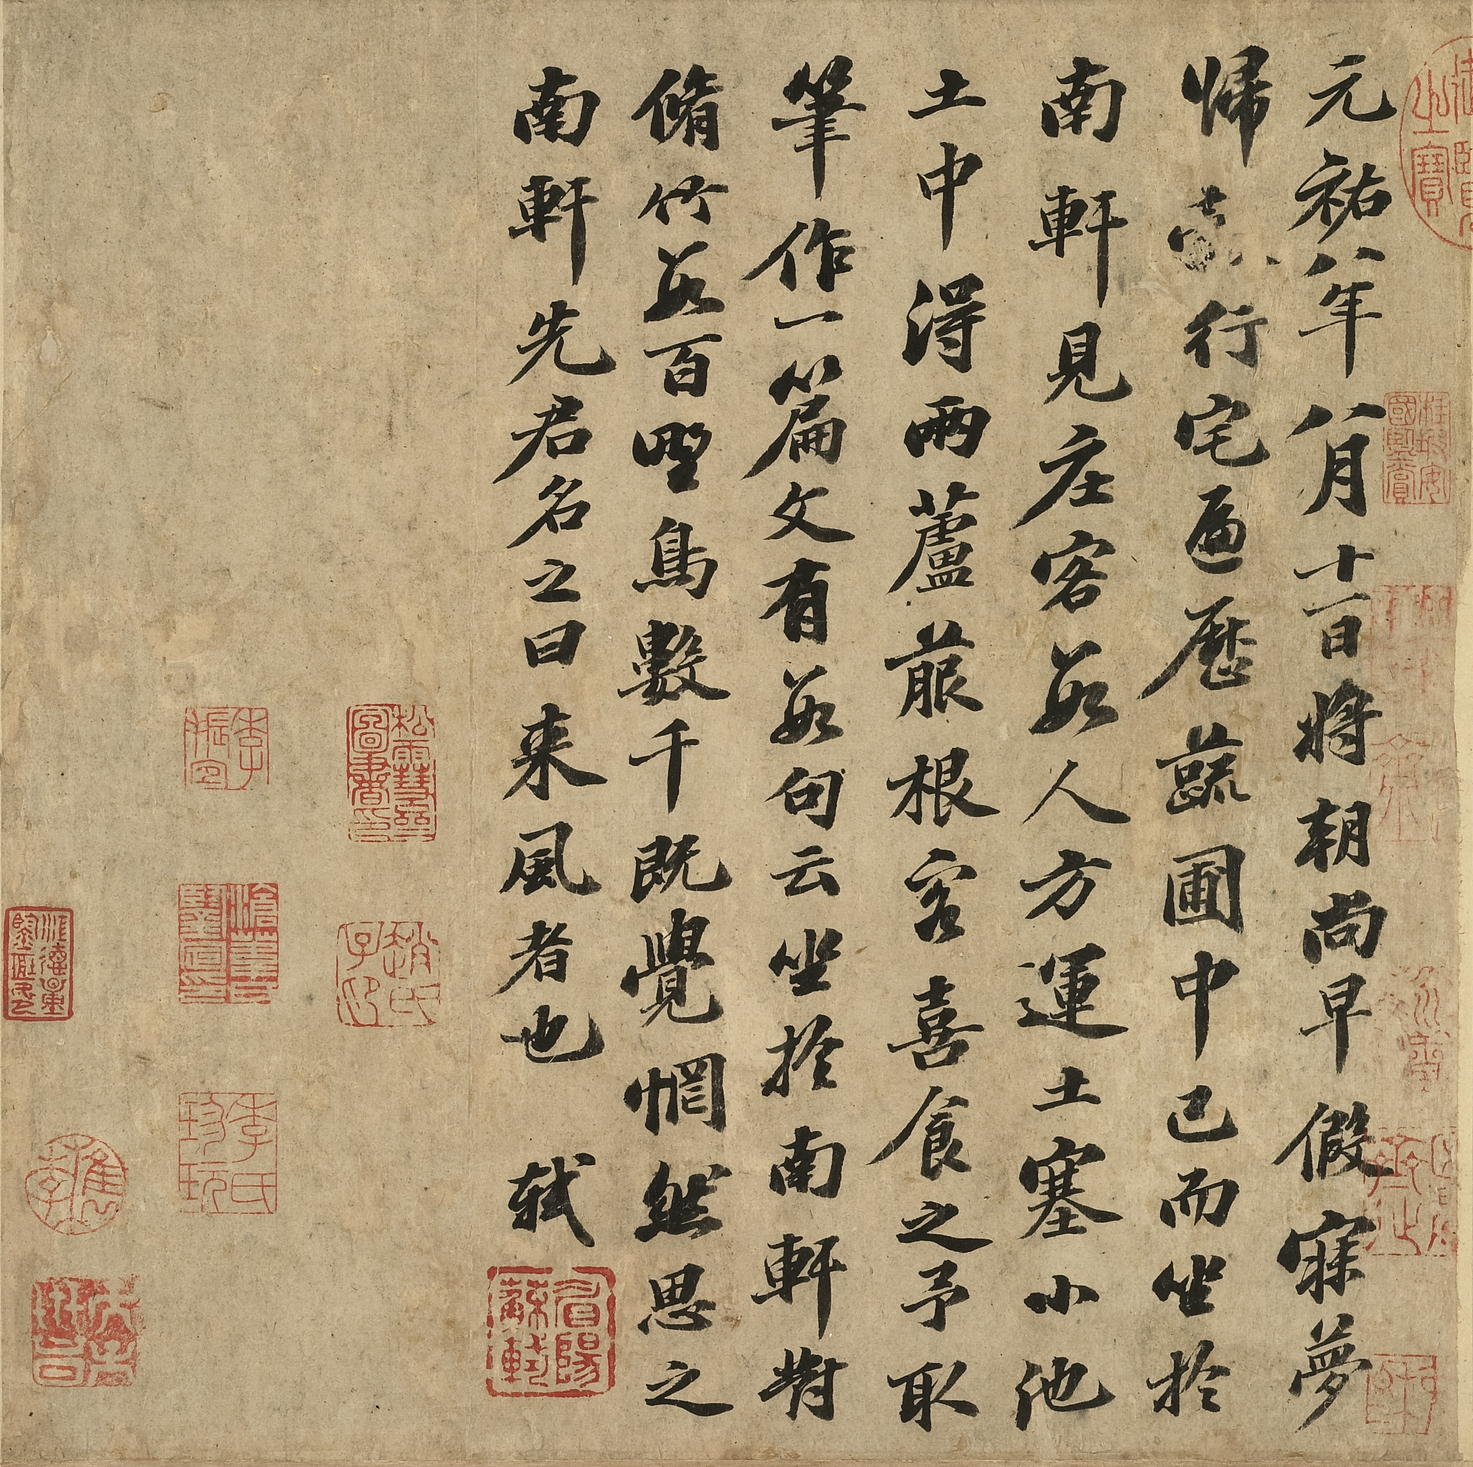 元祐八年八月十一日將朝尚早假寐夢
歸行宅遍歷蔬圃中已而坐於
南軒見庄客數人方運土塞小池
土中得兩蘆菔根客喜食之予取
筆作一篇文有數句云坐於南軒對
脩竹數百野鳥數千既覺惘然思之
南軒先君名之曰來風者也 軾
眉陽蘇軾
松雪齋圖書印
季氏珍玩